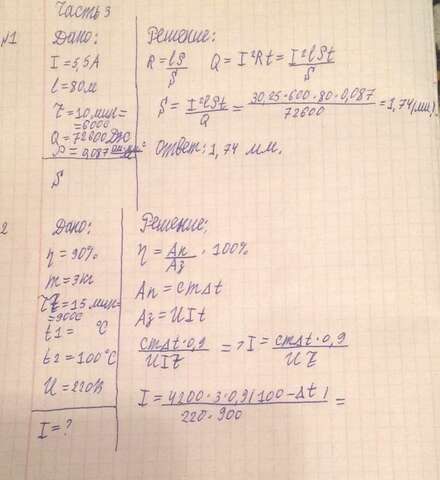 Часть 3
№1
Дано:
I = 5,5A
l = 80м
τ = 10 мин =
= 600с
Q = 72600Дж
ρ = 0,087
S
Решение:
R = lρ/S Q = I²Rt = I²lρt/S
S = I²lρt/Q = 30,25·600·80·0,087/72600 = 1,74(мм)
Ответ: 1,74 мм.
2
Дано:
η = 90%
m = 3кг
τ = 15 мин =
= 900с
t1 = °C
t2 = 100°C
U = 220В
I = ?
Решение:
η = Aп/Aз · 100%
Aп = cmΔt
Aз = UIt
cmΔt·0,9/UIτ => I = cmΔt·0,9/Uτ
I = 4200·3·0,9(100-Δt)/220·900 =